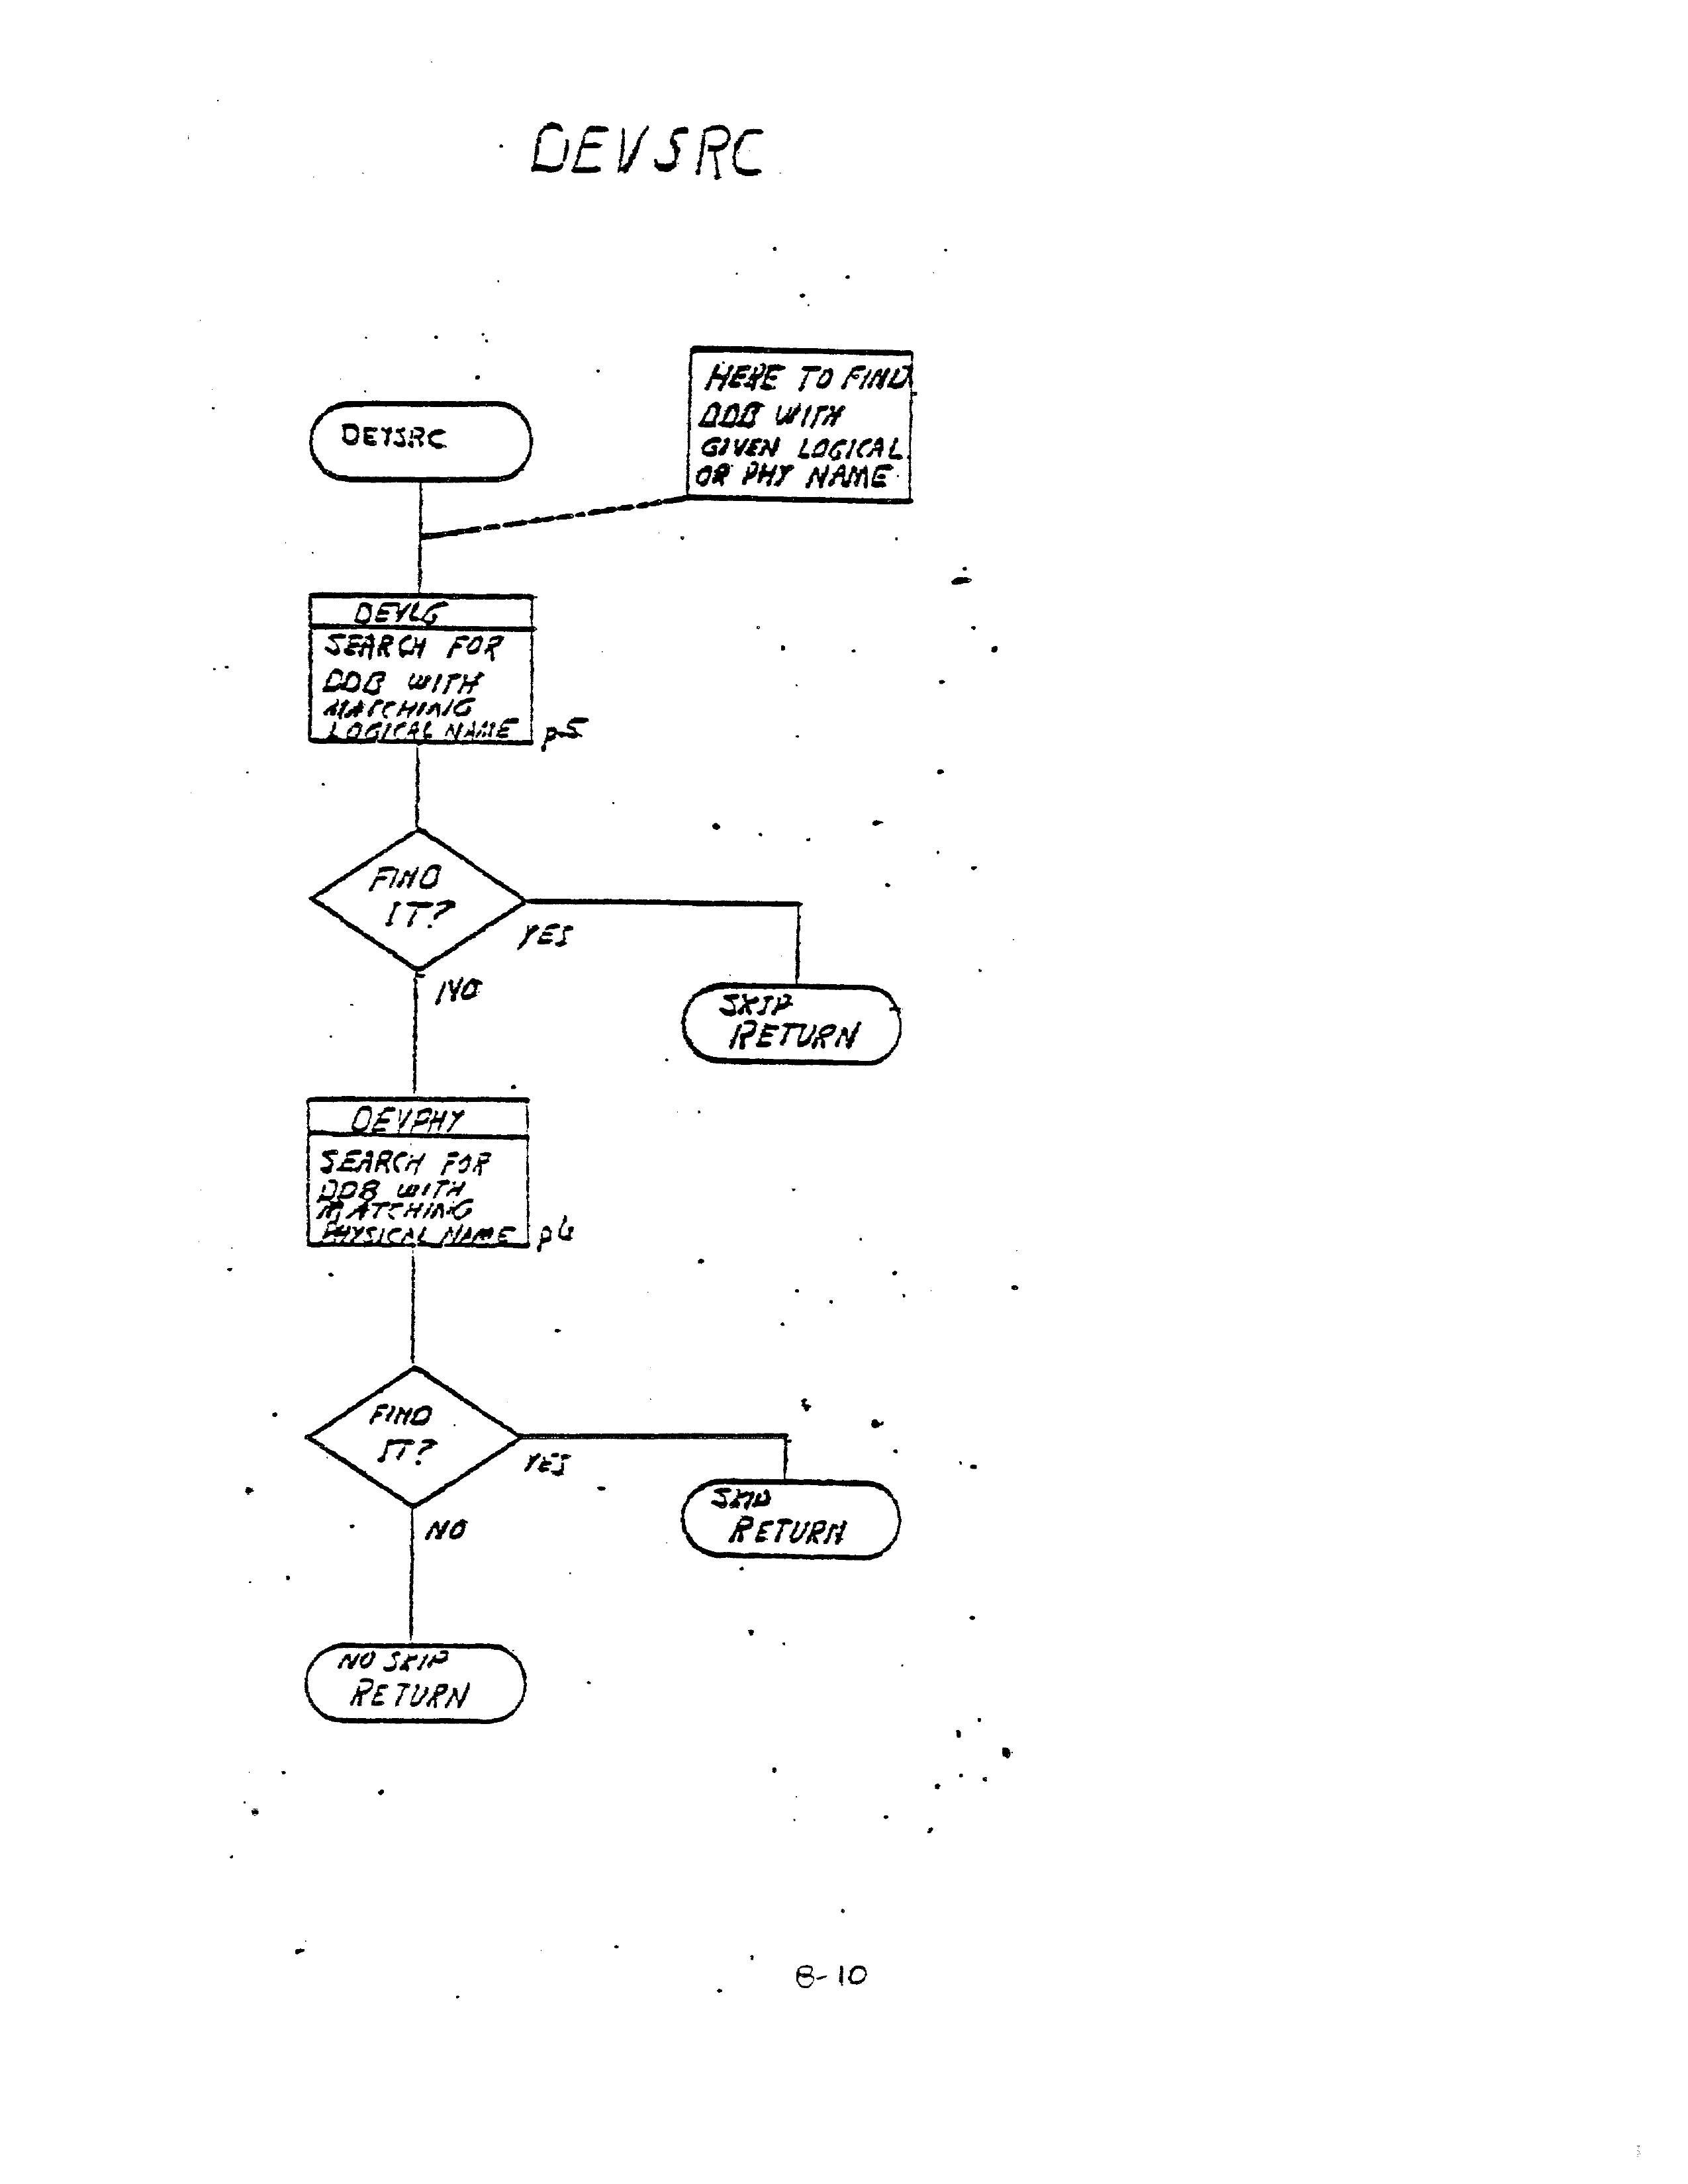 DEVSRC
HERE TO FIND
DDB WITH
GIVEN LOGICAL
OR PHY NAME
DEVSRC
DEVLG
SEARCH FOR
DDB WITH
MATCHING
LOGICAL NAME p5
FIND
IT?
YES
NO
SKIP
RETURN
DEVPHY
SEARCH FOR
DDB WITH
MATCHING
PHYSICAL NAME p6
FIND
IT?
YES
SKIP
RETURN
NO
NO SKIP
RETURN
8-10